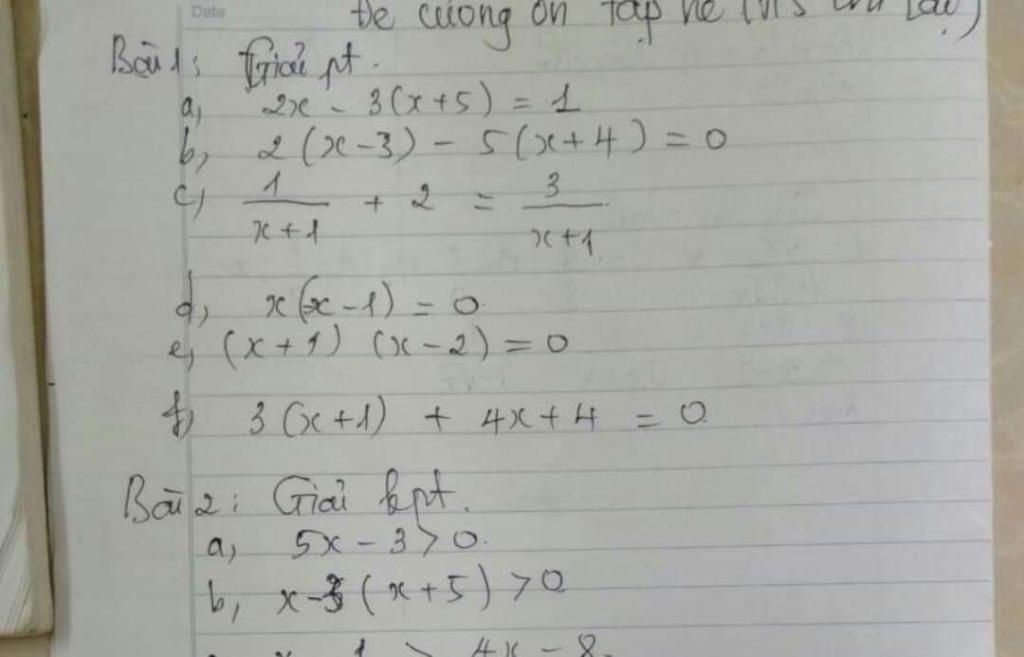 Date
Đề cương ôn tập hè
Bài 1: Giải pt.
a, 2x - 3(x+5) = 1
b, 2(x-3) - 5(x+4) = 0
c, 1/(x+1) + 2 = 3/(x+1)
d, x(x-1) = 0
e, (x+1) (x-2) = 0
f, 3(x+1) + 4x+4 = 0
Bài 2: Giải bpt.
a, 5x - 3 > 0.
b, x-3(x+5) > 0
x - 1 > 4x - 8